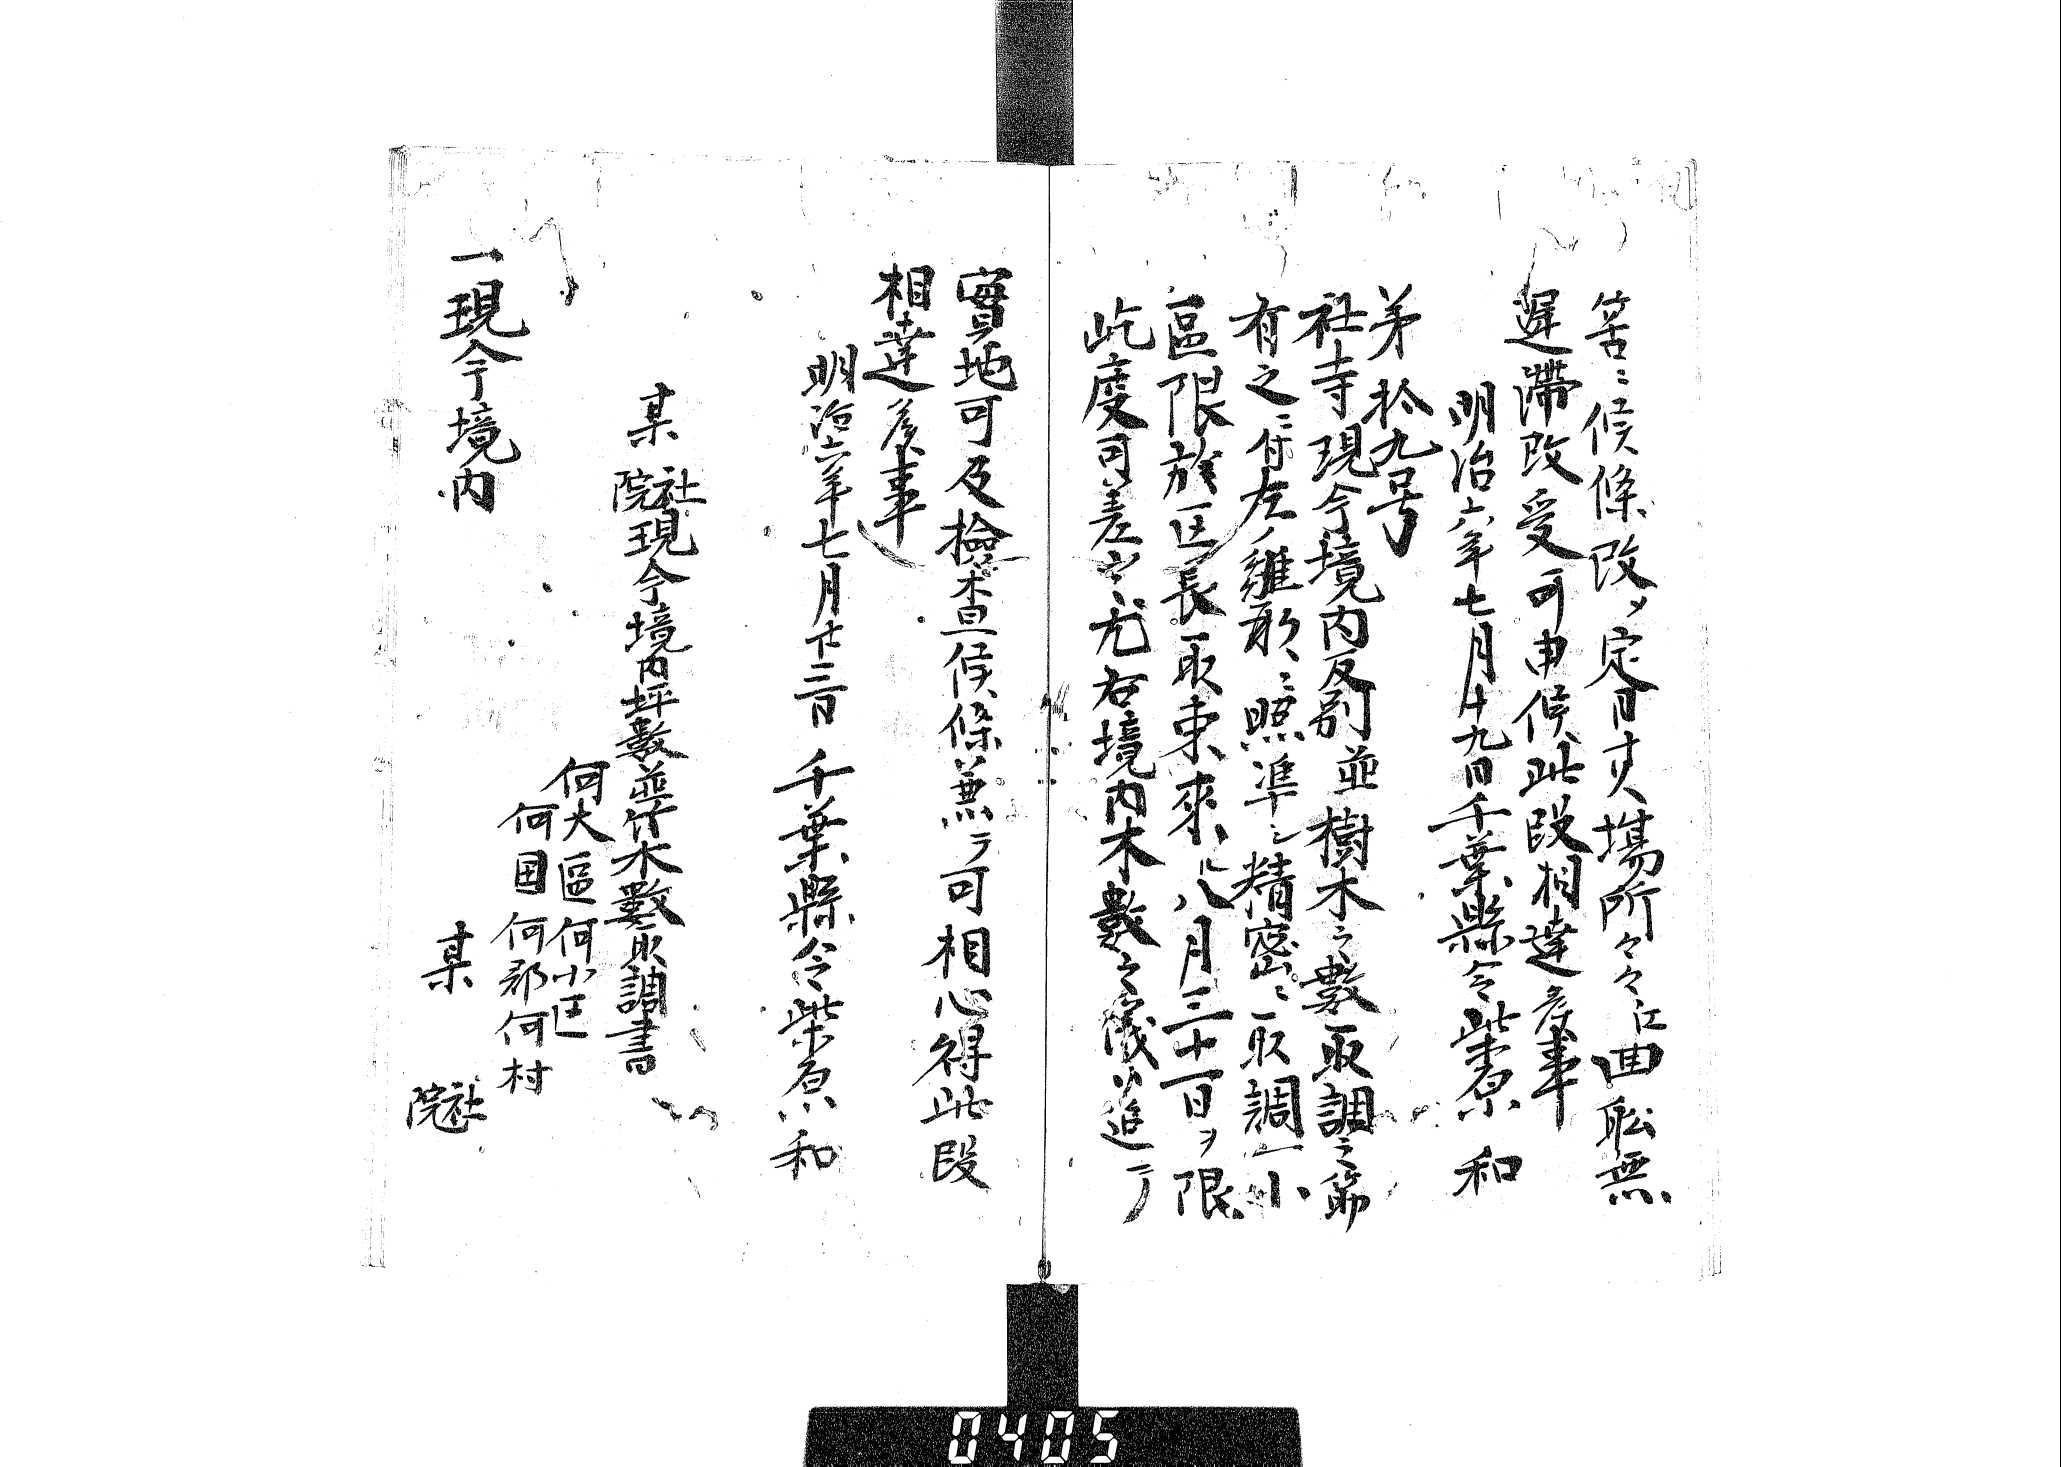 筈ニ候條改メ定日才尺場所々々江曲尺無
遅滞改受可申候此段相達候事
明治六年七月十九日千葉縣令柴原和
第拾九号
社寺現今境内反別並樹木之數取調之節
有之ニ付左ノ雛形ニ照準シ精密ニ取調一小
區限於区長取束來ル八月三十一日ヲ限
屹度可差出尤右境内木數之儀ハ追テ
實地可及檢査候條兼テ可相心得此段
相達候事
明治六年七月廿三日 千葉縣令柴原和
某社院現今境内坪數並竹木數取調書
何大區何小区
何国何郡何村
某社院
一現今境内
0405